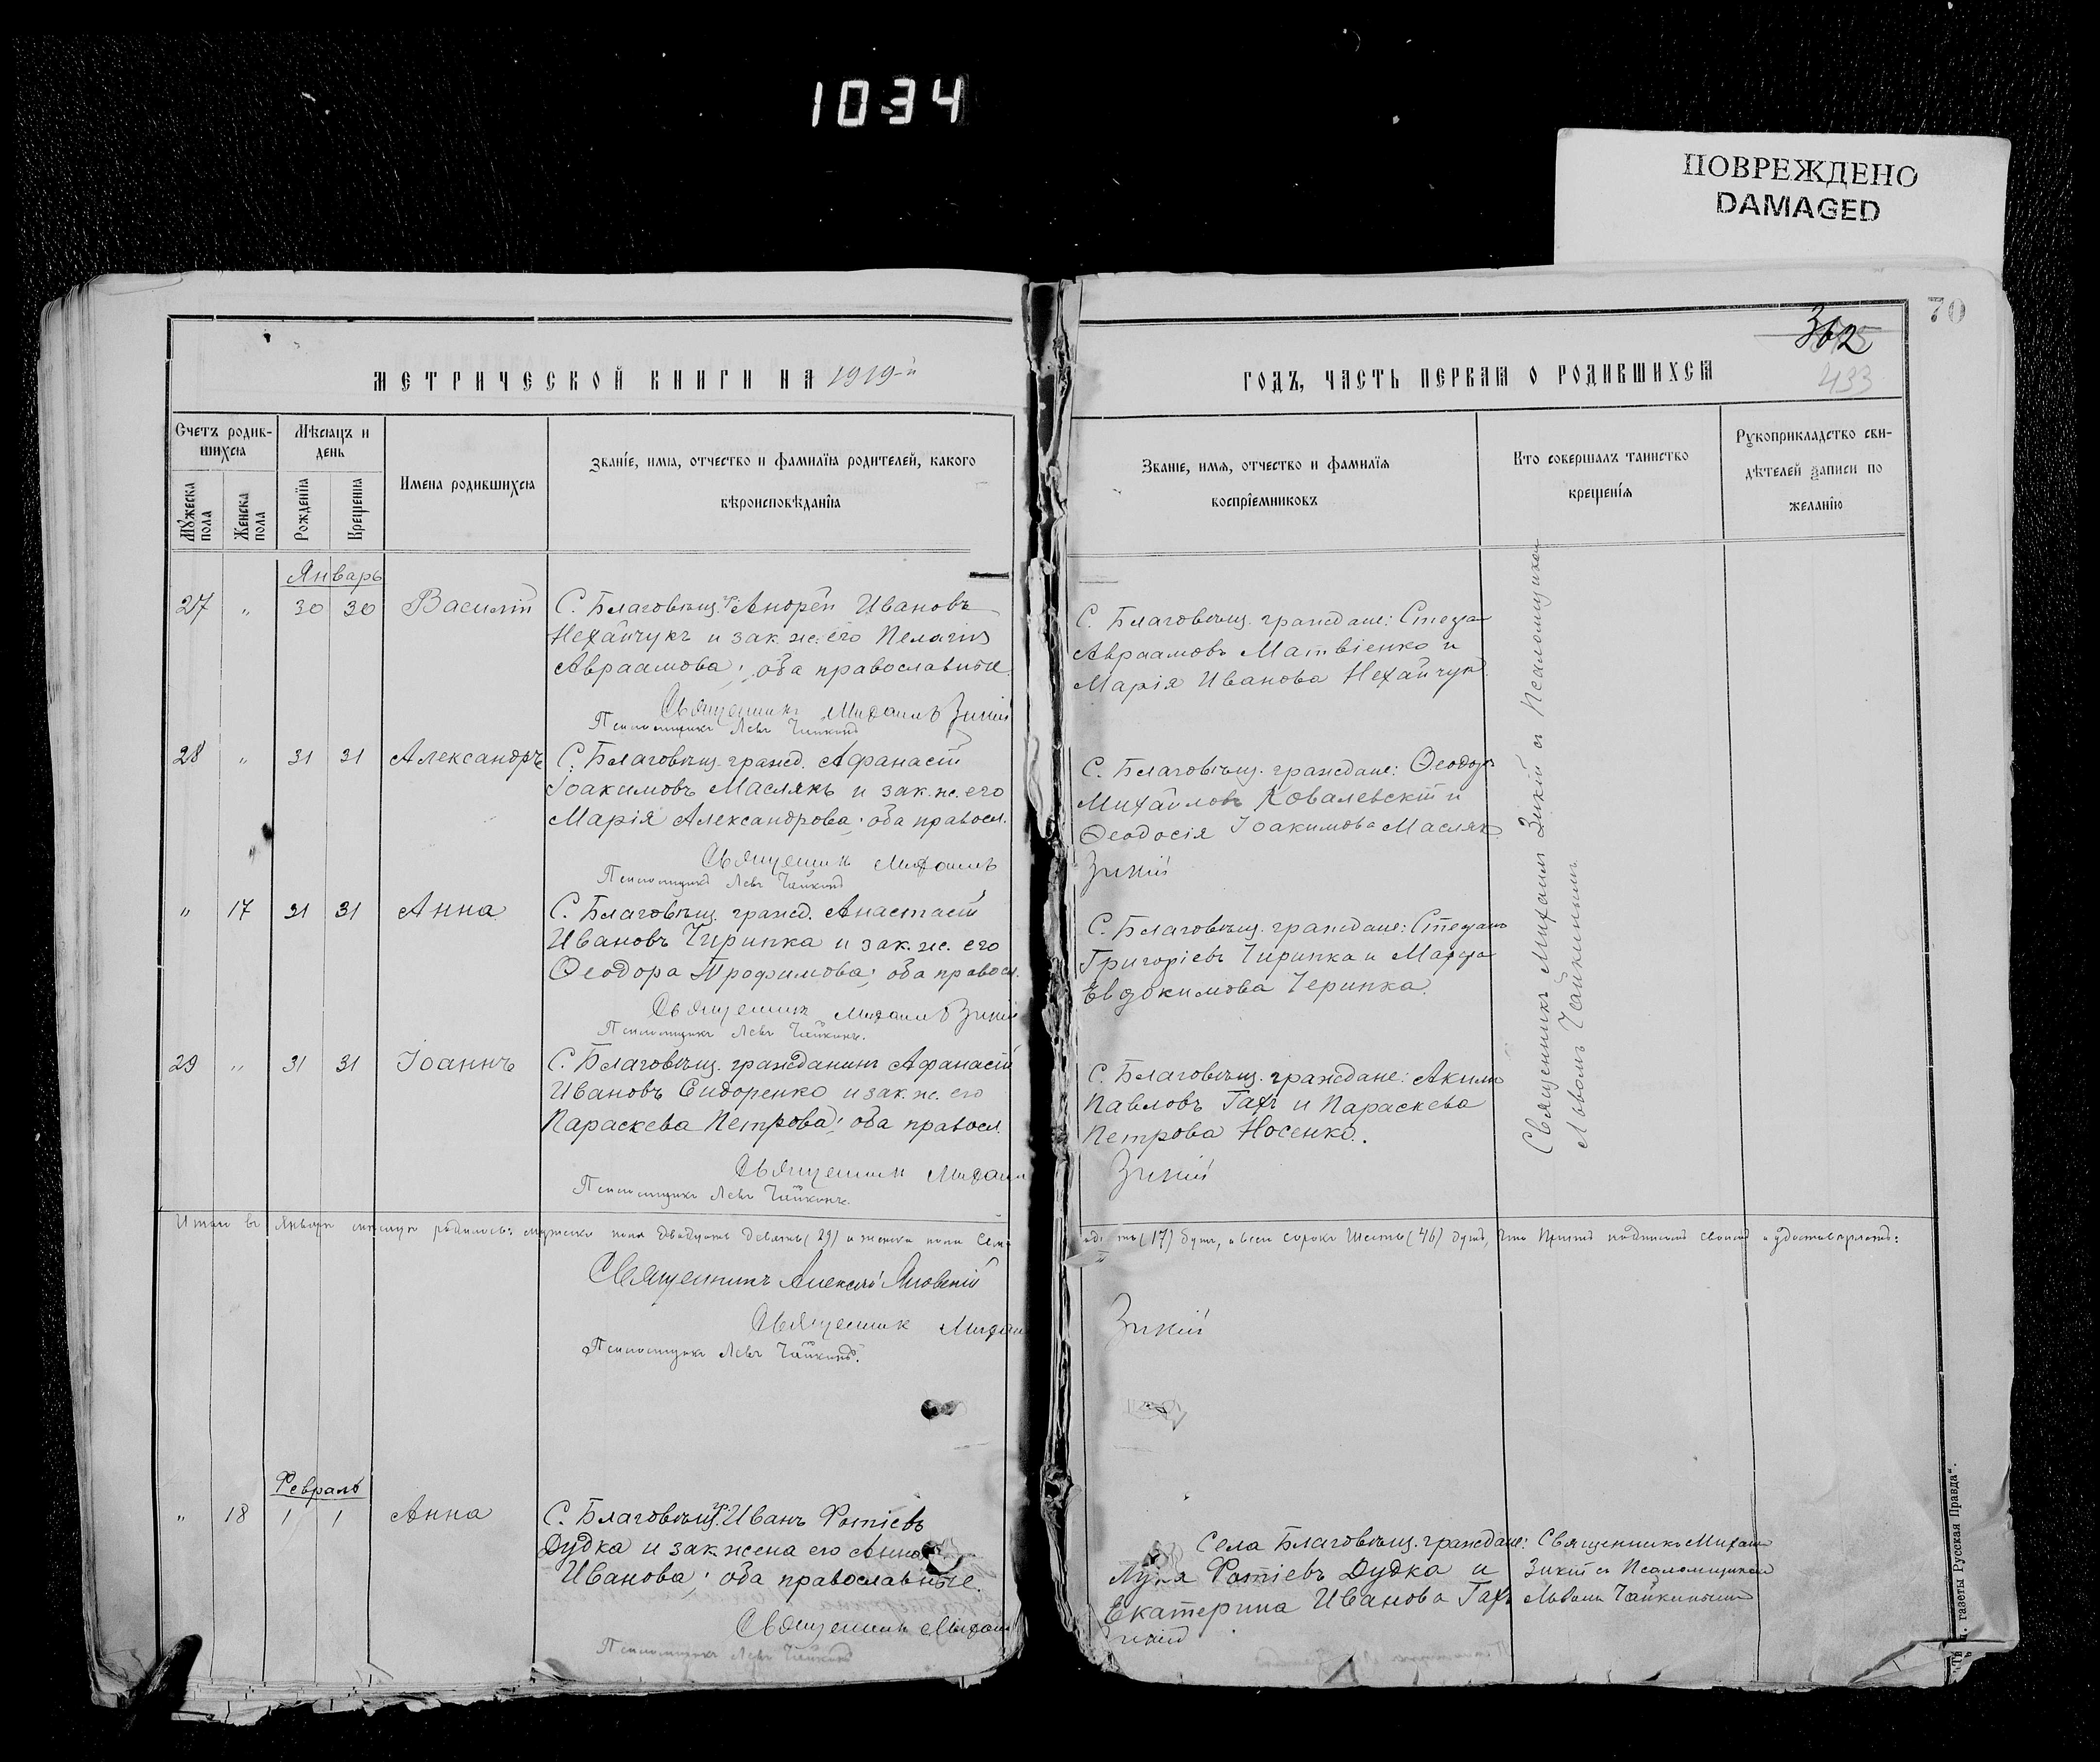 1034
ПОВРЕЖДЕНО
DAMAGED
70
362
433
МЕТРИЧЕСКОЙ КНИГИ НА 1919-й
ГОДЪ, ЧАСТЬ ПЕРВАЯ О РОДИВШИХСЯ
Счетъ родив-
шихся
Мѣсяцъ и
день
Имена родившихся
Званіе, имя, отчество и фамилія родителей, какого
вѣроисповѣданія
Мужеска
пола
Женска
пола
Рожденія
Крещенія
Званіе, имя, отчество и фамилія
воспріемниковъ
Кто совершалъ таинство
крещенія
Рукоприкладство сви-
дѣтелей записи по
желанію
Январь
27 " 30 30 Василій С. Благовѣщ. гр. Андрей Ивановъ
Нехайчукъ и зак. ж. его Пелагія
Авраамова; оба православные.
Священникъ Михаилъ Зикій
Псаломщикъ Левъ Чайкинъ
С. Благовѣщ. граждане: Стефанъ
Авраамовъ Матвіенко и
Марія Иванова Нехайчукъ
28 " 31 31 Александръ С. Благовѣщ. гражд. Афанасій
Іоакимовъ Маслякъ и зак. ж. его
Марія Александрова; оба правосл.
Священник Михаилъ
Псаломщикъ Левъ Чайкинъ
С. Благовѣщ. граждане: Ѳеодоръ
Михайловъ Ковалевскій и
Ѳеодосія Іоакимова Маслякъ
Зикій
" 17 31 31 Анна С. Благовѣщ. гражд. Анастасій
Ивановъ Чирипка и зак. ж. его
Ѳеодора Трофимова; оба правосл.
Священник Михаилъ Зикій
Псаломщикъ Левъ Чайкинъ.
С. Благовѣщ. граждане: Стефанъ
Григоріевъ Чирипка и Марфа
Евдокимова Черипка.
29 " 31 31 Іоаннъ С. Благовѣщ. гражданинъ Афанасій
Ивановъ Сидоренко и зак. ж. его
Параскева Петрова; оба правосл.
Священник Михаил
Псаломщикъ Левъ Чайкинъ.
С. Благовѣщ. граждане: Акимъ
Павловъ Гахъ и Параскева
Петрова Носенко.
Зикій
Священникъ Михаилъ Зикій съ Псаломщикомъ
Львомъ Чайкинымъ
Итого въ Январѣ мѣсяцѣ родилось: мужска пола двадцать девять (29) и женска пола семнадцать (17) душъ, а всего сорокъ шесть (46) душъ, что Причтъ подписомъ своимъ и удостовѣряетъ:
Священникъ Алексѣй
Священник Михаил
Зикій
Псаломщикъ Левъ Чайкинъ.
Февраль
" 18 1 1 Анна С. Благовѣщ. гр. Иванъ Фотіевъ
Дудка и зак. жена его Анна
Иванова; оба православные.
Священник Михаил
Псаломщикъ Левъ Чайкинъ
Села Благовѣщ. граждане:
Лука Фотіевъ Дудка и
Екатерина Иванова Гахъ
Зикій
Священникъ Михаилъ
Зикій съ Псаломщикомъ
Львомъ Чайкинымъ
газеты „Русская Правда“.